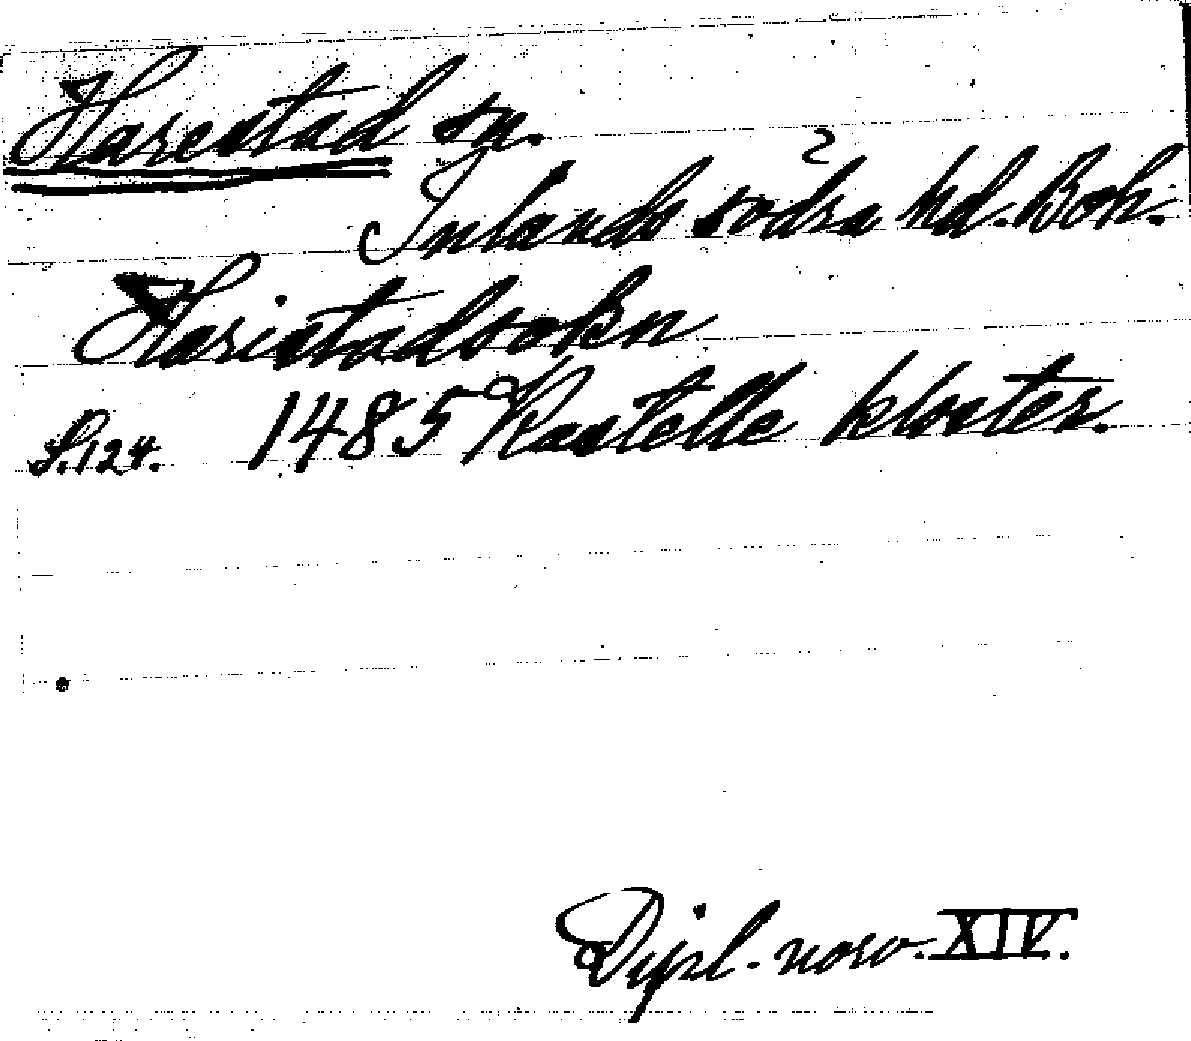 Harestad sn.
Inlands södra hd. Boh.
Haristadsokn
S. 124. 1485 Kastelle kloster.
Dipl. norv. XIV.